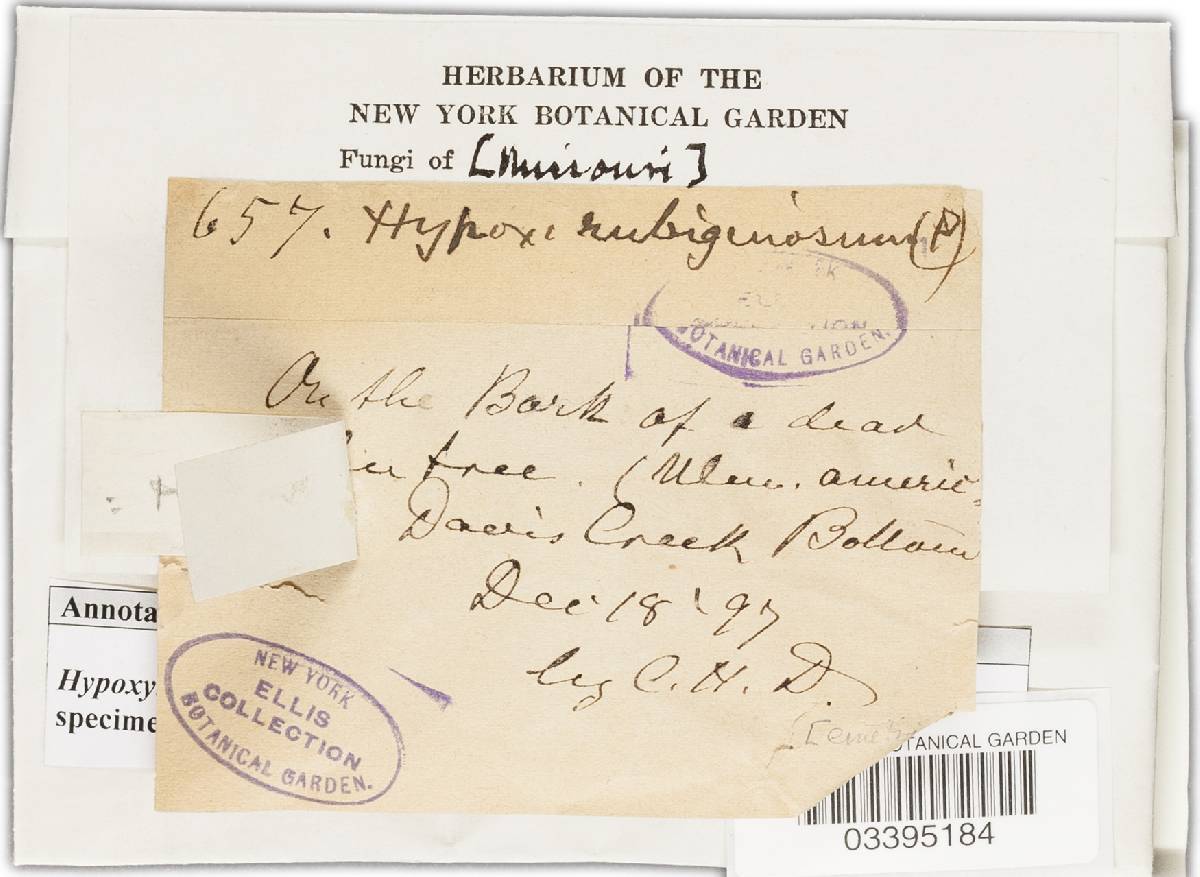 HERBARIUM OF THE
NEW YORK BOTANICAL GARDEN
Fungi of [Missouri]
657. Hypox. rubiginosum (P)
BOTANICAL GARDEN.
On the Bark of a dead
tree. (Ulm. americ
Davis Creek Bottom
Dec 18 '97
leg C. H. D.
Annota
Hypoxy
specime
NEW YORK
ELLIS
COLLECTION
BOTANICAL GARDEN.
OTANICAL GARDEN
03395184